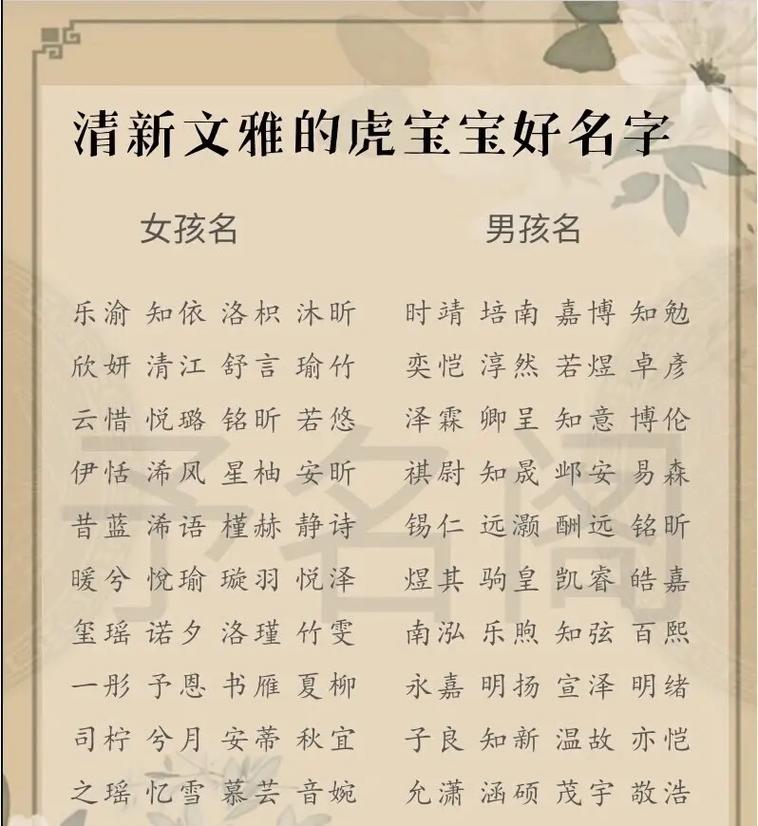 清新文雅的虎宝宝好名字
女孩名 男孩名
乐渝 知依 洛枳 沐昕 时靖 培南 嘉博 知勉
欣妍 清江 舒言 瑜竹 奕恺 淳然 若煜 卓彦
云惜 悦璐 铭昕 若悠 泽霖 卿呈 知意 博伦
伊恬 浠风 星柚 安昕 祺尉 知晟 邺安 易森
昔蓝 浠语 槿赫 静诗 锡仁 远灏 酬远 铭昕
暖兮 悦瑜 璇羽 悦泽 煜其 驹皇 凯睿 皓嘉
玺瑶 诺夕 洛瑾 竹雯 南泓 乐煦 知弦 百熙
一彤 予恩 书雁 夏柳 永嘉 明扬 宣泽 明绪
司柠 兮月 安蒂 秋宜 子良 知新 温故 亦恺
之瑶 忆雪 慕芸 音婉 允潇 涵硕 茂宇 敬浩
予名阁